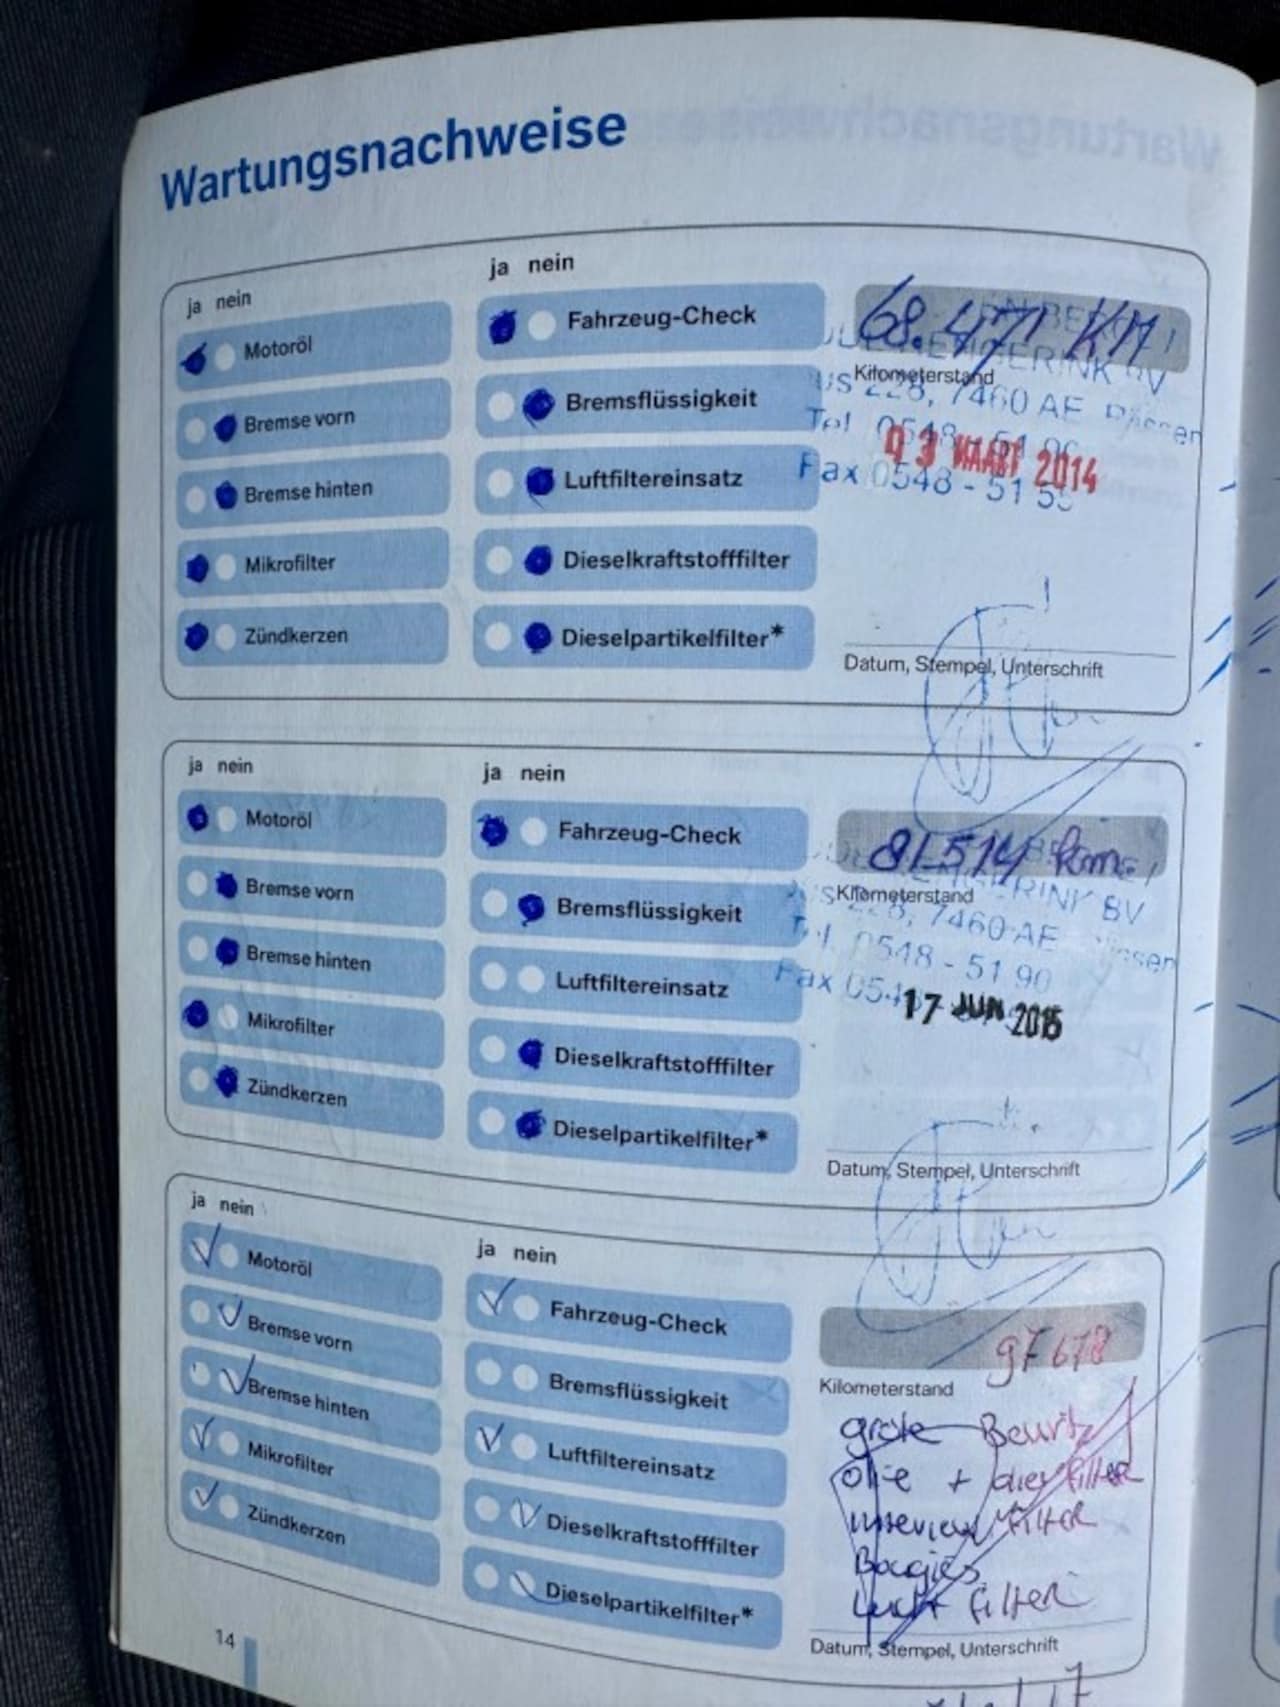 Wartungsnachweise
ja nein
Motoröl
Bremse vorn
Bremse hinten
Mikrofilter
Zündkerzen
ja nein
Fahrzeug-Check
Bremsflüssigkeit
Luftfiltereinsatz
Dieselkraftstofffilter
Dieselpartikelfilter*
68.471 KM
Kilometerstand
228, 7460 AE
Tel 0548
03 MAART 2014
Fax 0548 - 51 55
Datum, Stempel, Unterschrift
ja nein
Motoröl
Bremse vorn
Bremse hinten
Mikrofilter
Zündkerzen
ja nein
Fahrzeug-Check
Bremsflüssigkeit
Luftfiltereinsatz
Dieselkraftstofffilter
Dieselpartikelfilter*
81514
Kilometerstand
BV
7460 AE
0548 - 51 90
Fax
17 JUN 2015
Datum, Stempel, Unterschrift
ja nein
Motoröl
Bremse vorn
Bremse hinten
Mikrofilter
Zündkerzen
ja nein
Fahrzeug-Check
Bremsflüssigkeit
Luftfiltereinsatz
Dieselkraftstofffilter
Dieselpartikelfilter*
97678
Kilometerstand
grote Beurt
olie + filter
filter
Bougies
Lucht filter
Datum, Stempel, Unterschrift
14